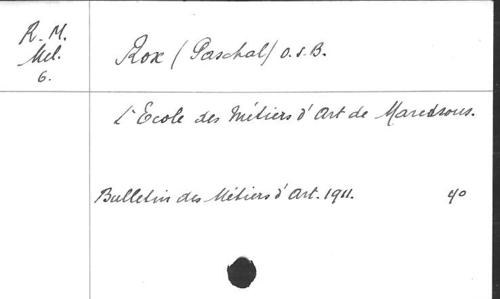 R. M.
Mel.
6.
Rox (Paschal) O.S.B.
L'Ecole des Métiers d'Art de Maredsous.
Bulletin des Métiers d'Art. 1911. 40